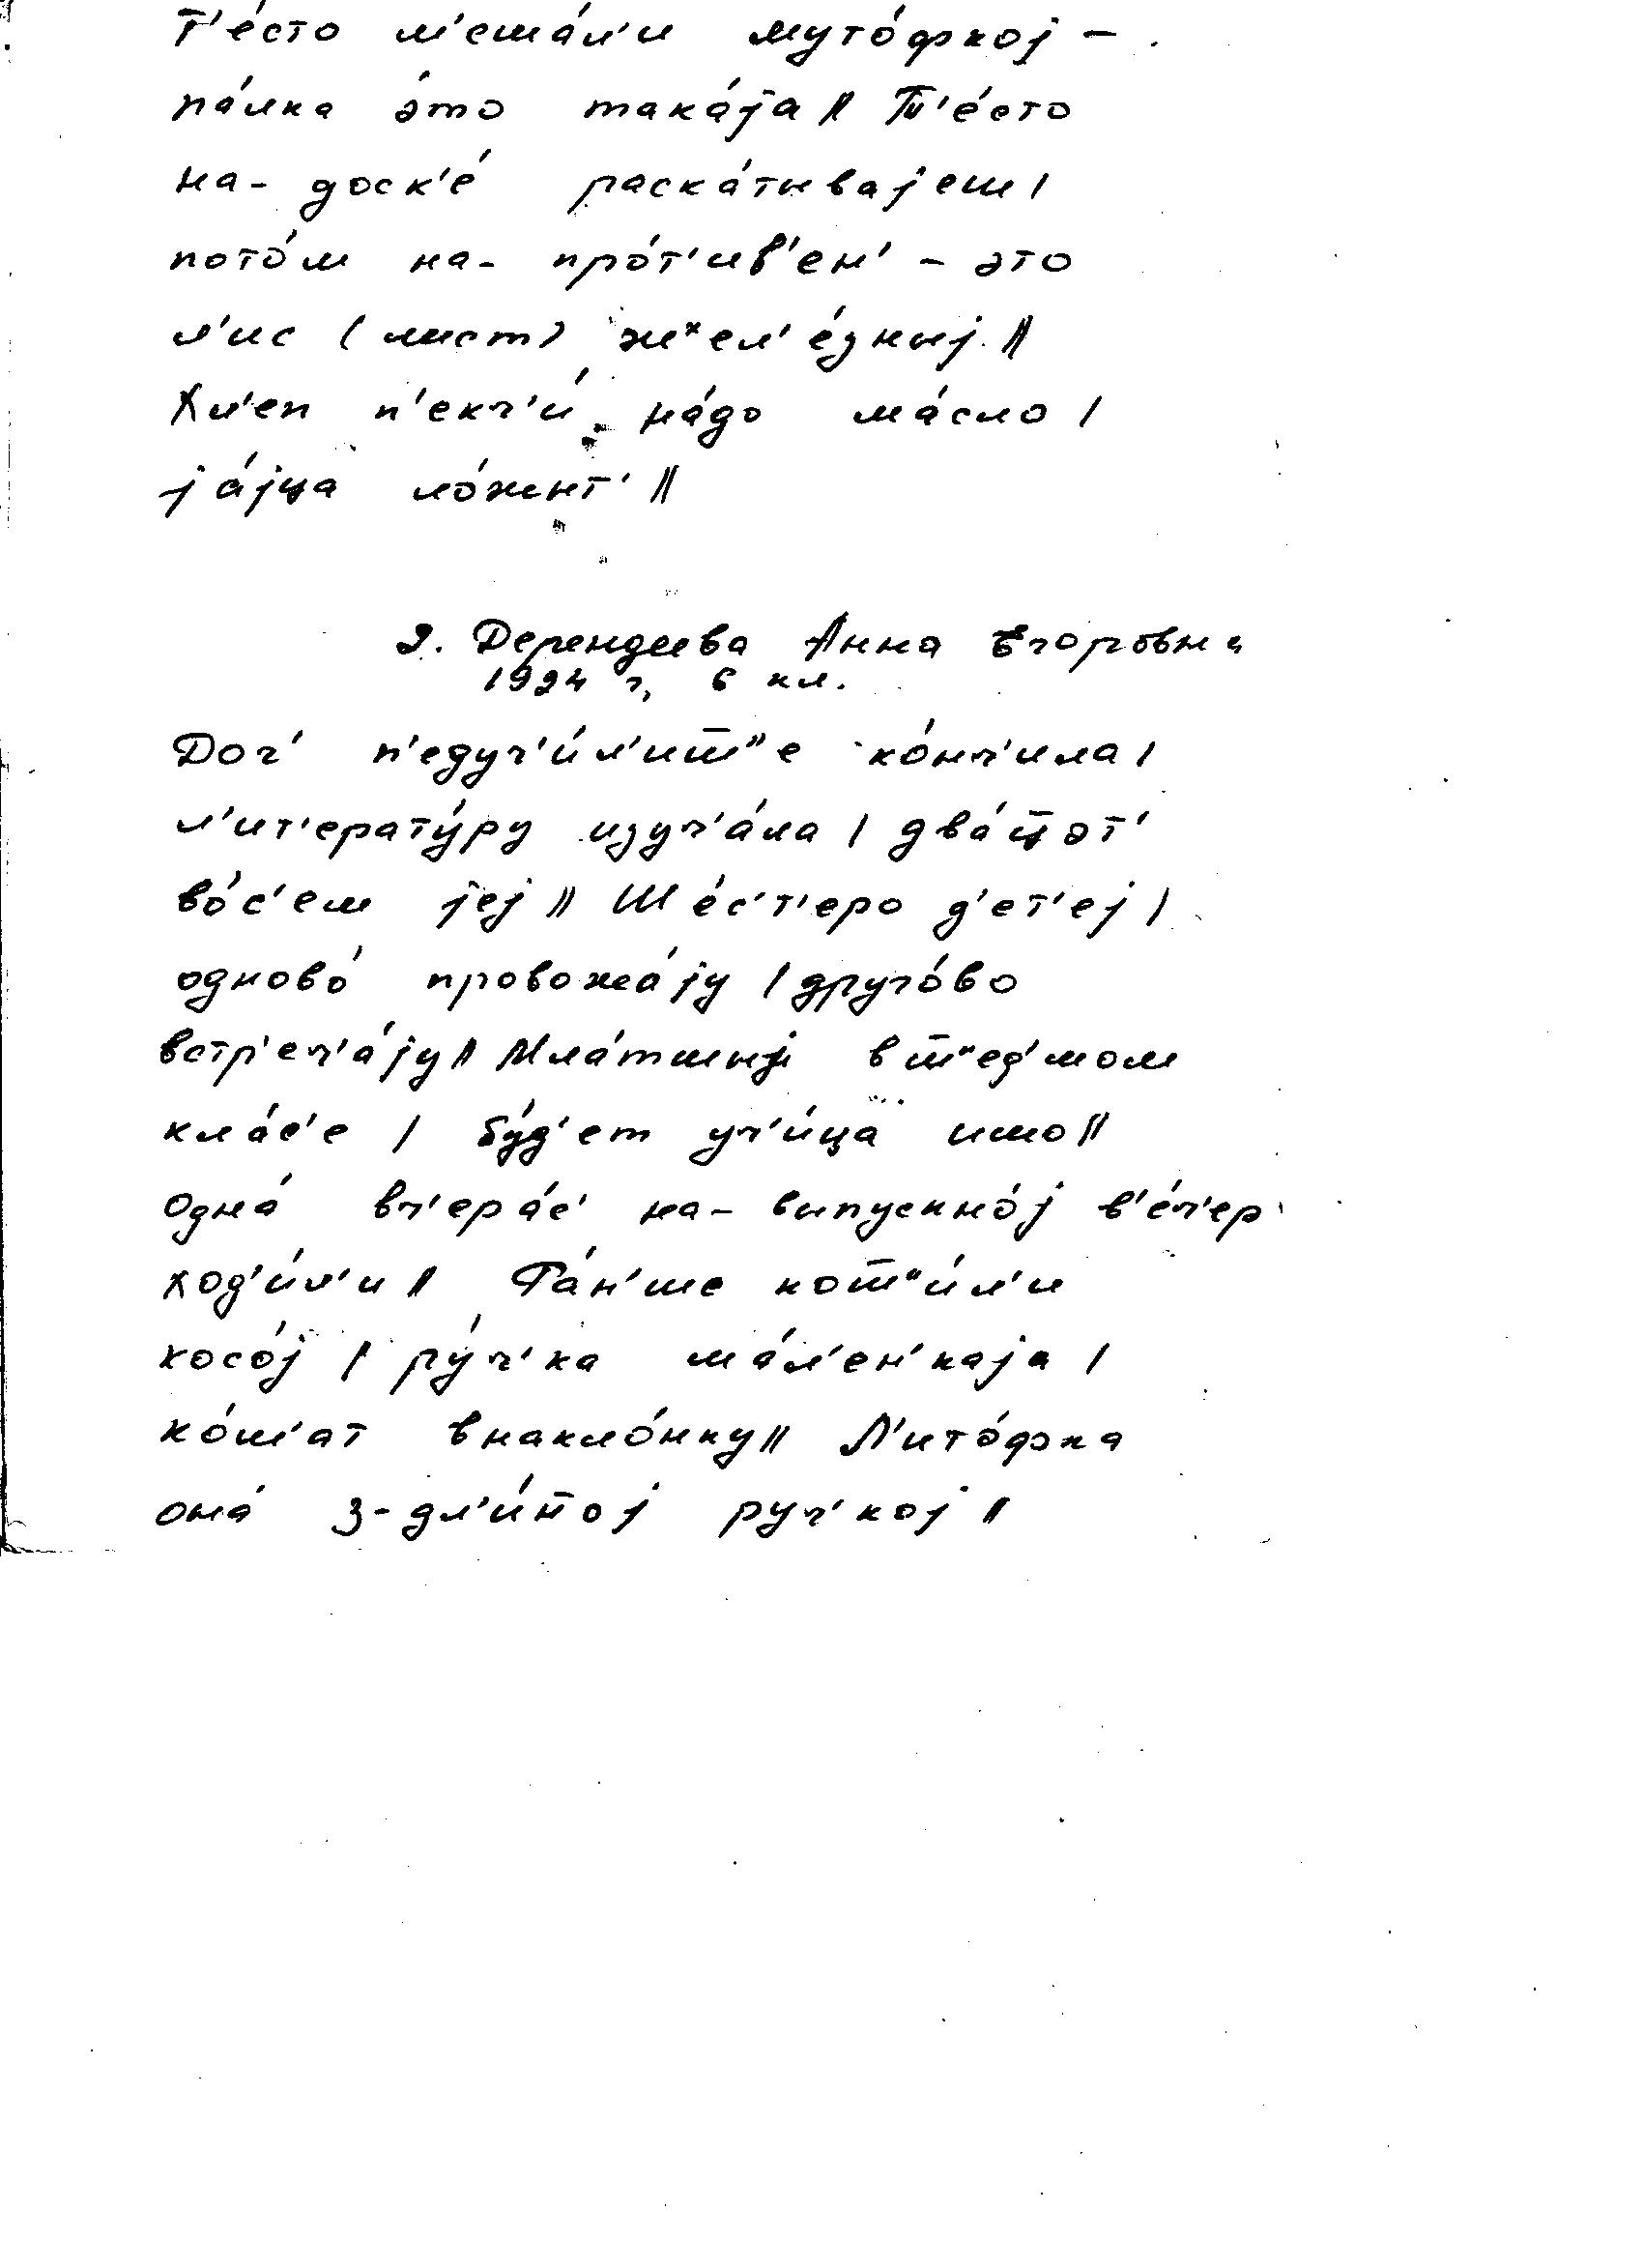 Т'е́сто м'еша́л'и муто́фкој –
па́лка э́то така́ја || Т'е́сто
на- доск'е́ раска́тывајеш |
пото́м на- про́т'ив'ен' – это
л'ис (лист) ж"ел'е́зныј ||
Хл'еп п'екч'и́ на́до ма́сло |
ја́јца ло́жыт' ||
2. Дерендеева Анна Егоровна
1924 г, 6 кл.
Доч' п'едуч'и́л'ит̅"е ко́нч'ила |
л'ит'ерату́ру изуч'а́ла | два́ц̅эт'
во́с'ем јеј || Ше́с'т'еро д'ет'еј |
одново́ провожа́ју | друго́во
встр'еч'а́ју || Мла́тшыј
кла́с'е | бу́д'ет уч'и́ца ишо ||
Одна́ вч'ера́с' на- выпускно́ј в'е́ч'ер
ход'и́л'и || Ра́н'ше
косо́ј | ру́ч'ка ма́л'ен'каја |
ко́ш'ат внакло́нку || Л'ито́фка
она́ з-дл'и́н̅ој руч'кој ||